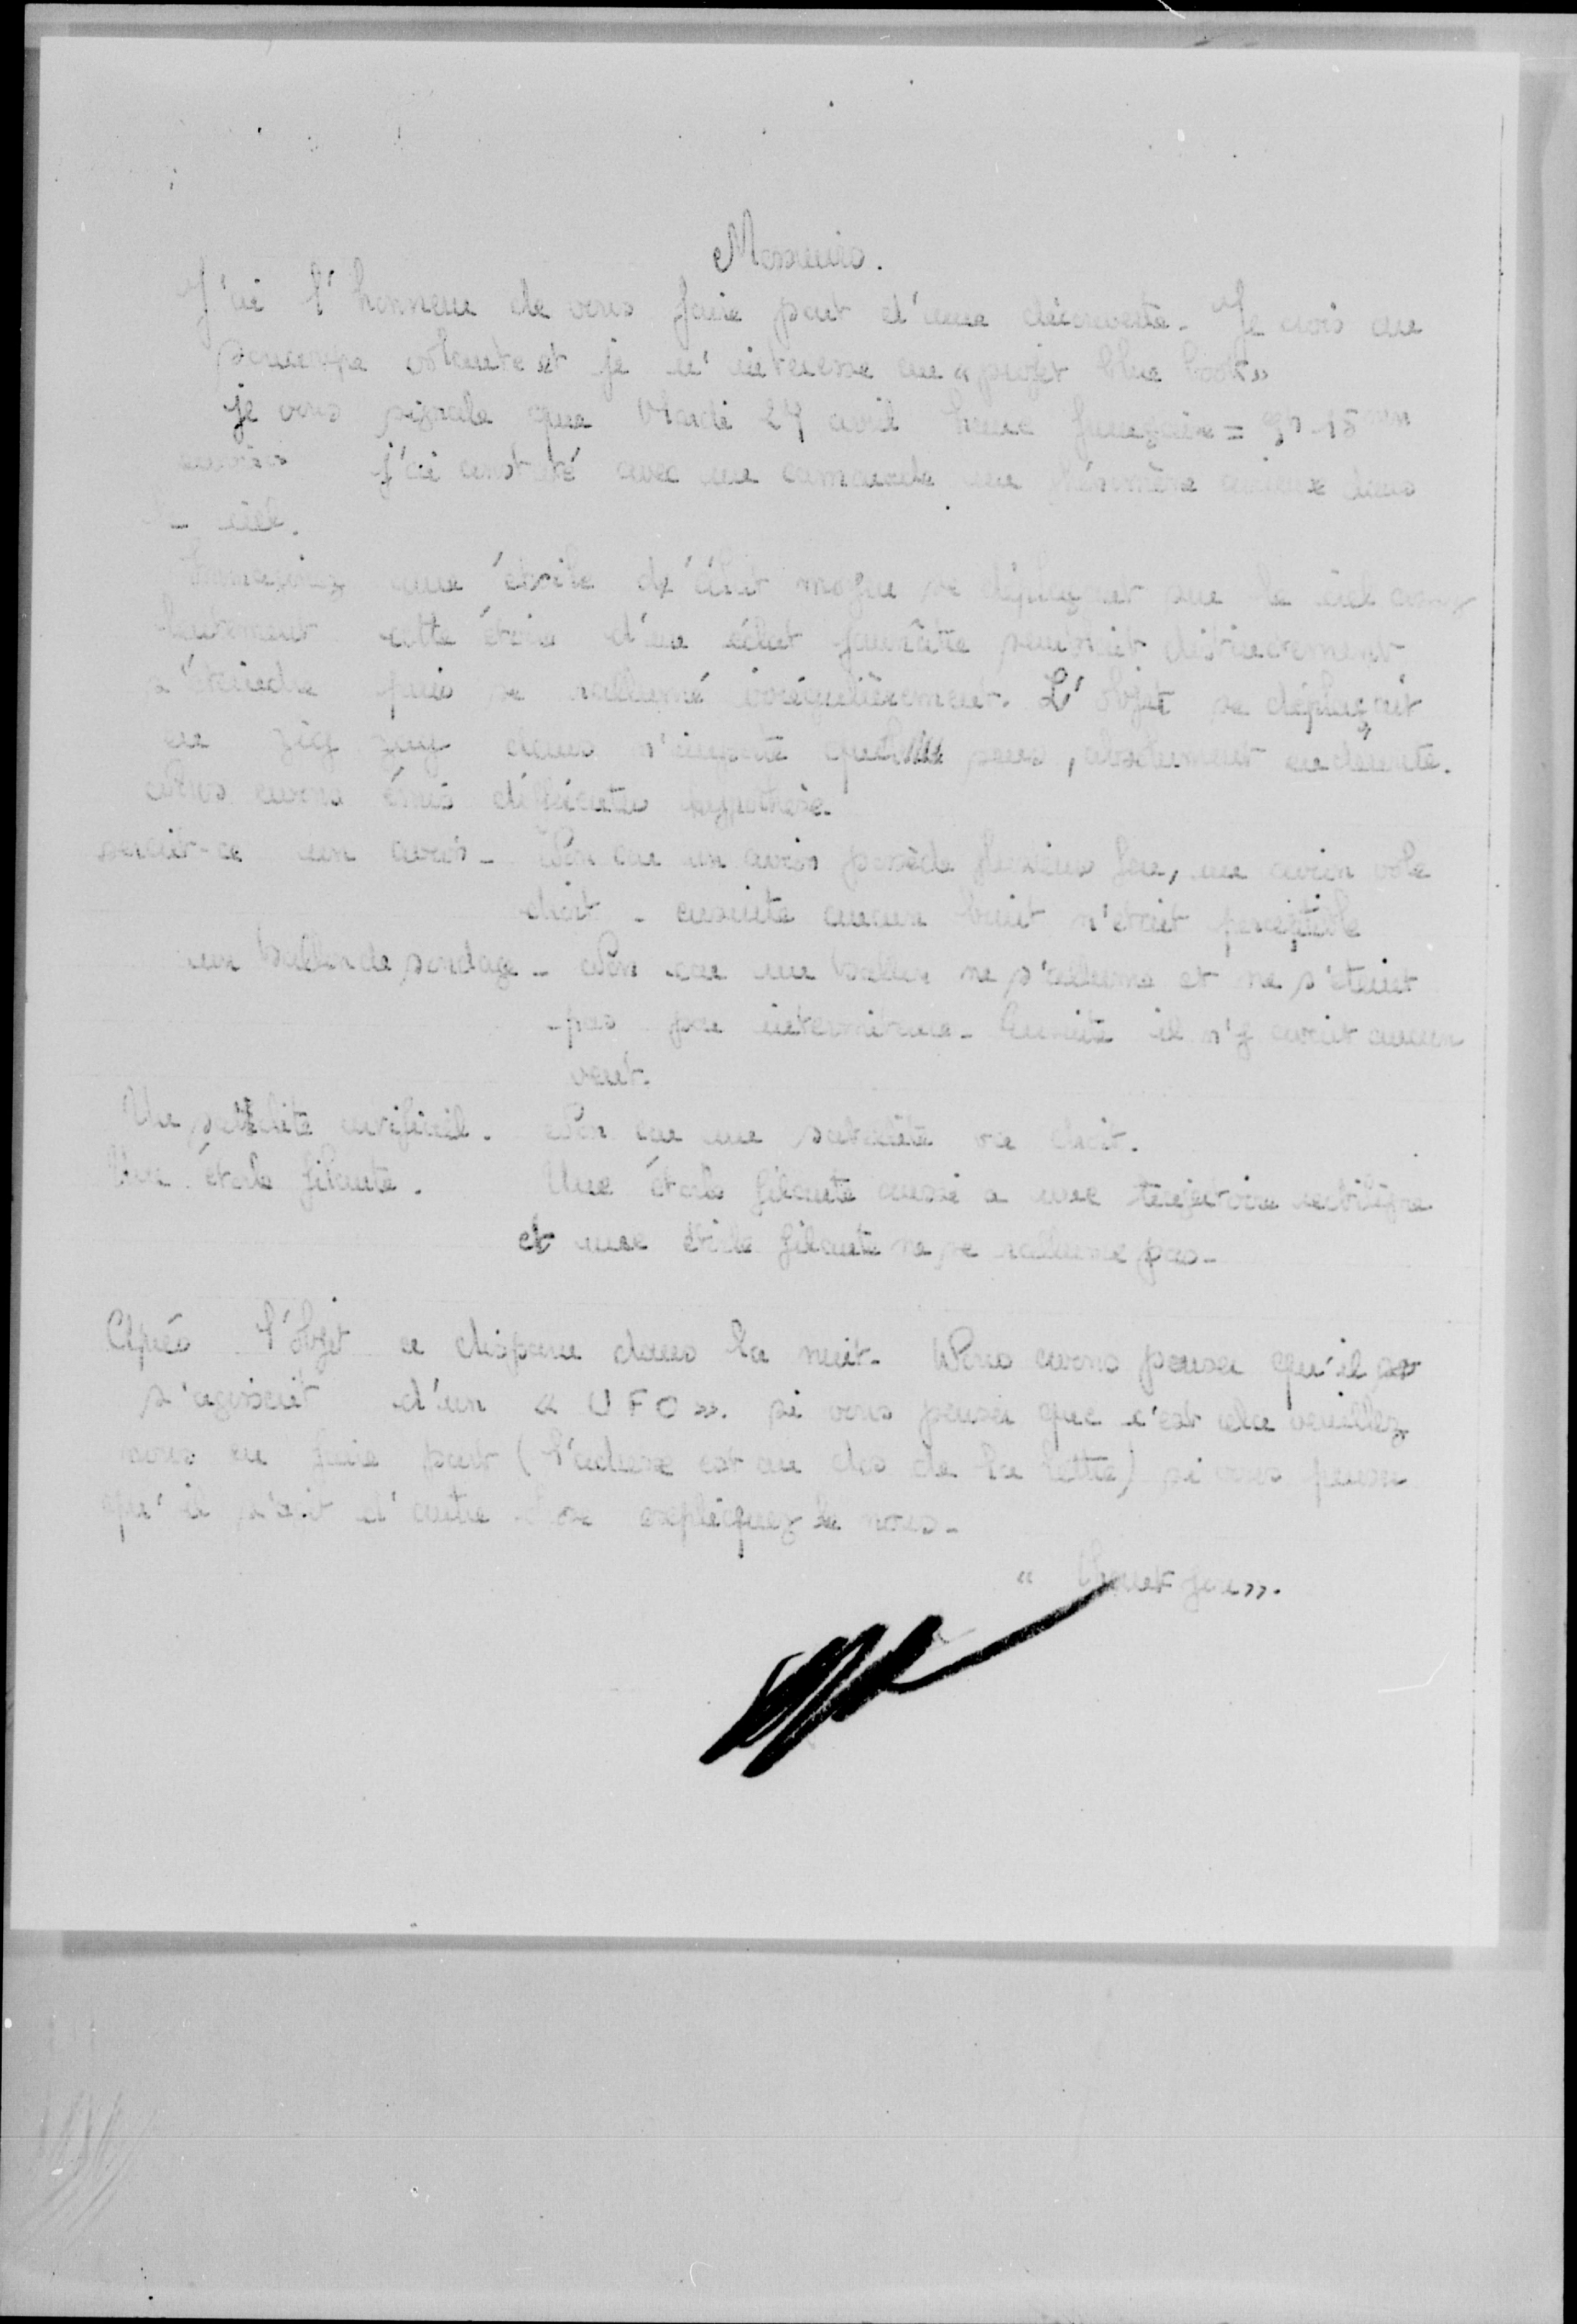 Messieurs.
J'ai l'honneur de vous faire part d'une découverte. Je crois au
soucoupe volante et je m'interesse au « projet blue book »
je vous signale que Mardi 27 avril heure française = 9h 15 min
environ j'ai constaté avec un camarade un phénomène curieux dans
le ciel.
Immaginez une étoile d'éclat moyen se déplaçant sur le ciel assez
lentement cette étoile d'un éclat jaunâtre semblait distinctement
s'éteindre puis se rallumé irrégulièrement. L'objet se déplaçait
en zig zag dans n'importe quel sens, absolument
Nous avons émis différentes hypothèse.
serait-ce un avion - Non car un avion possède plusieurs feu, un avion vole
droit - ensuite aucun bruit n'etait perceptible
un ballon de sondage - Non car un ballon ne s'allume et ne s'eteint
pas par intermitence - Ensuite il n'y avait aucun
vent.
Un satellite artificiel. Non car un satellite va droit.
Une étoile filante. Une étoile filante aussi a une trajectoire rectiligne
et une étoile filante ne se rallume pas -
Après l'objet a disparu dans la nuit. Nous avons penser qu'il
s'agissait d'un « UFO ». si vous penser que c'est cela veuillez
nous en faire part (l'adresse est au dos de la lettre) si vous penser
qu'il s'agit d'autre chose expliquez le nous -